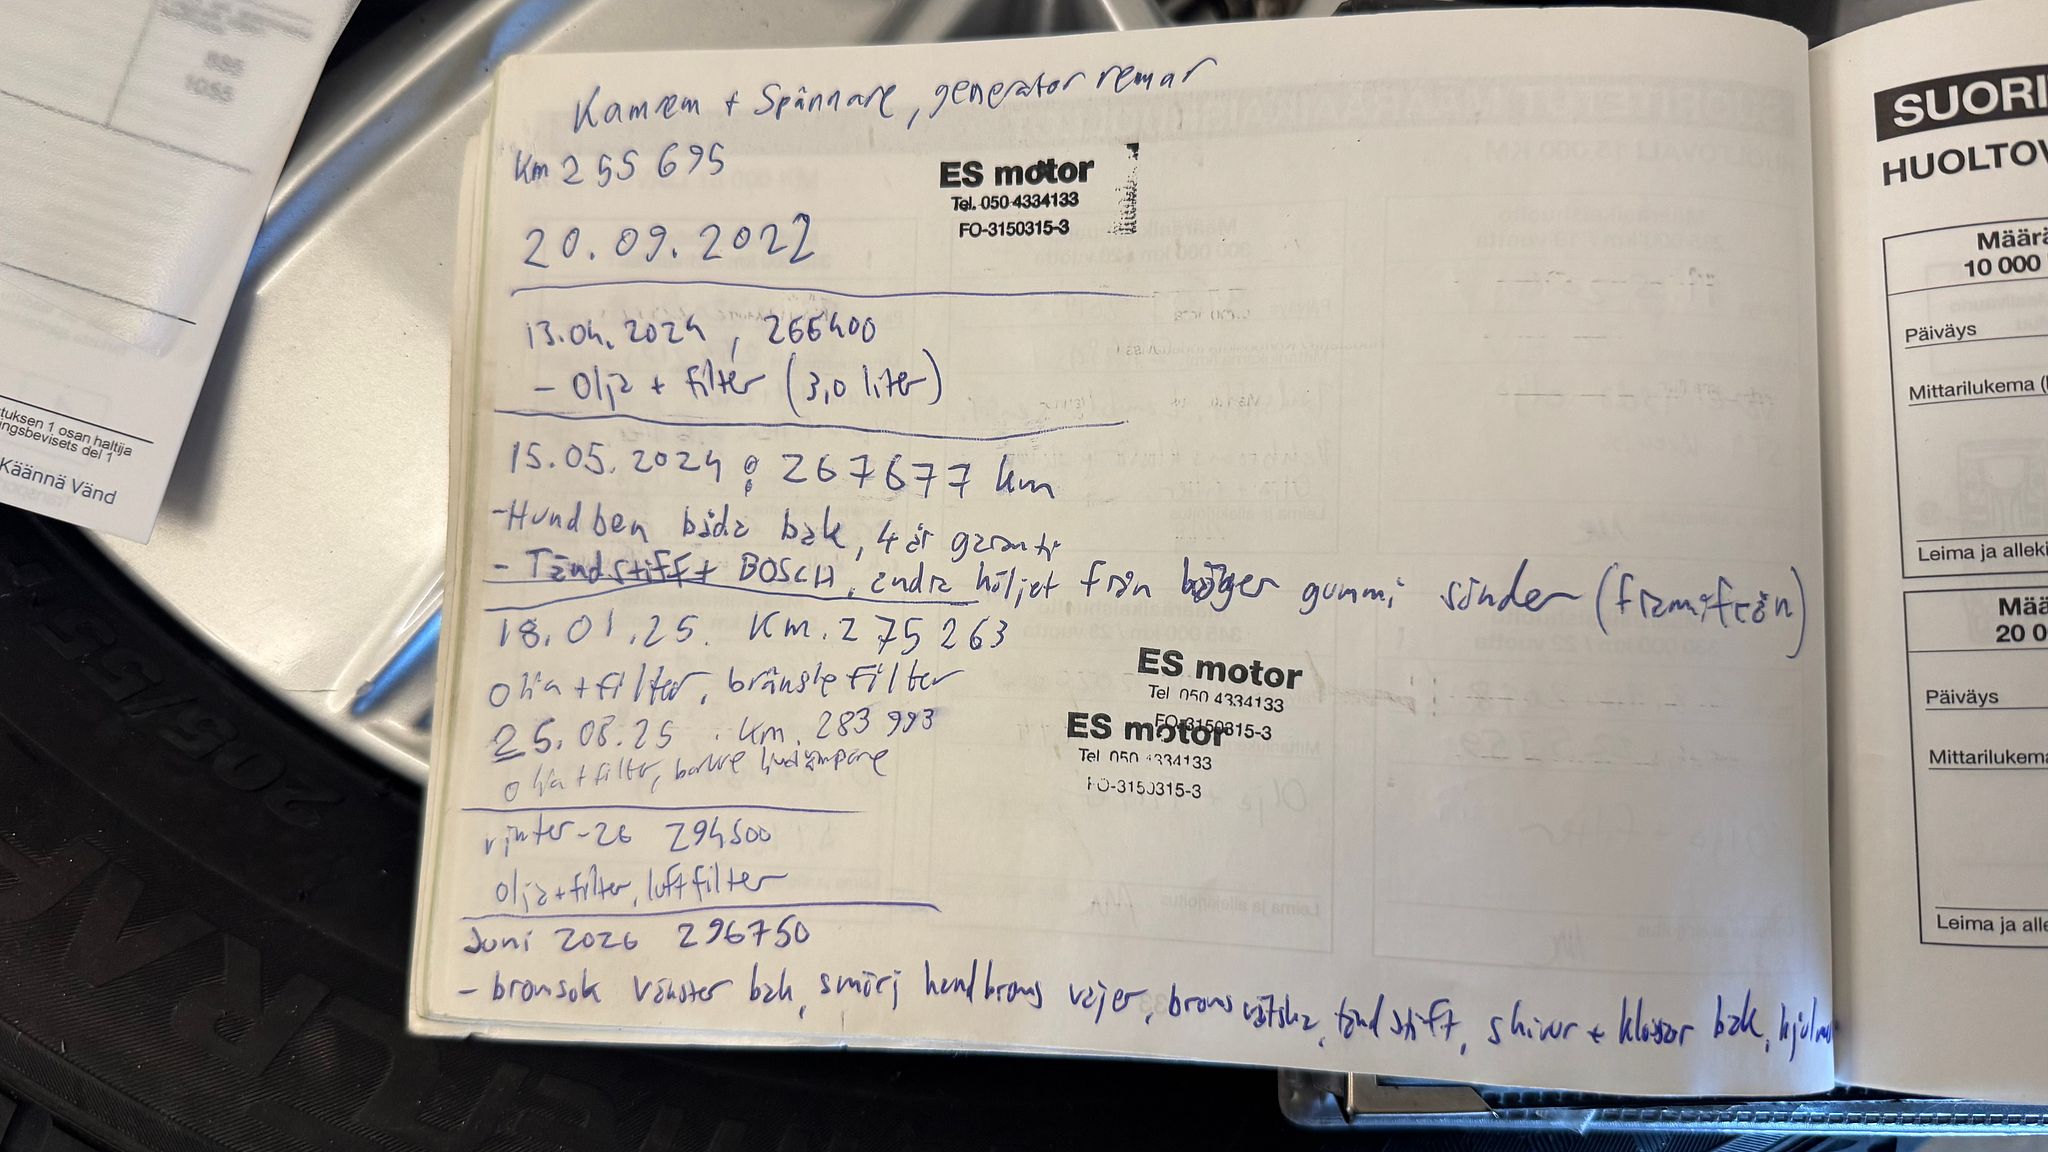 586
1055
tuksen 1 osan haltija
ngsbevisets del 1
Käännä Vänd
Kamrem + Spännare, generator remar
Km 255 695
20.09.2022
ES motor
Tel. 050 4334133
FO-3150315-3
13.04.2024, 266400
- Olja + filter (3,0 liter)
15.05.2024: 267677 km
- Hundben båda bak, 4 år garanti
- Tändstift BOSCH, andra höljet från höger gummi sönder (framifrån)
18.01.25. Km. 275263
olja + filter, bränslefilter
ES motor
Tel 050 4334133
FO-3150315-3
25.08.25. Km. 283 993
olja + filter, bakre ljuddämpare
ES motor
Tel 050 4334133
FO-3150315-3
vinter-26 294500
olja + filter, luftfilter
Juni 2026 296750
- bromsok vänster bak, smörj handbroms vajer, bromsvätska, tändstift, skivor + klossar bak,
SUORI
HUOLTOV
Määrä
10 000
Päiväys
Mittarilukema (
Leima ja alleki
Mää
20 0
Päiväys
Mittarilukema
Leima ja alle
205/55